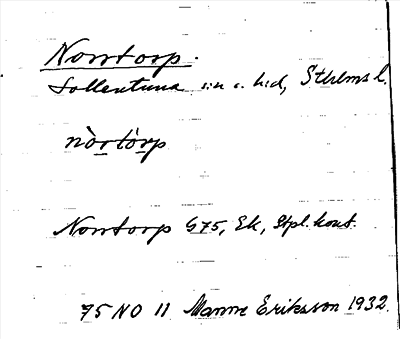 Norrtorp.
Sollentuna sn o. hd, Sthlms l.
nòrtòrp
Norrtorp G75, Ek, Stpl. kont.
75 NO 11 Manne Eriksson 1932.